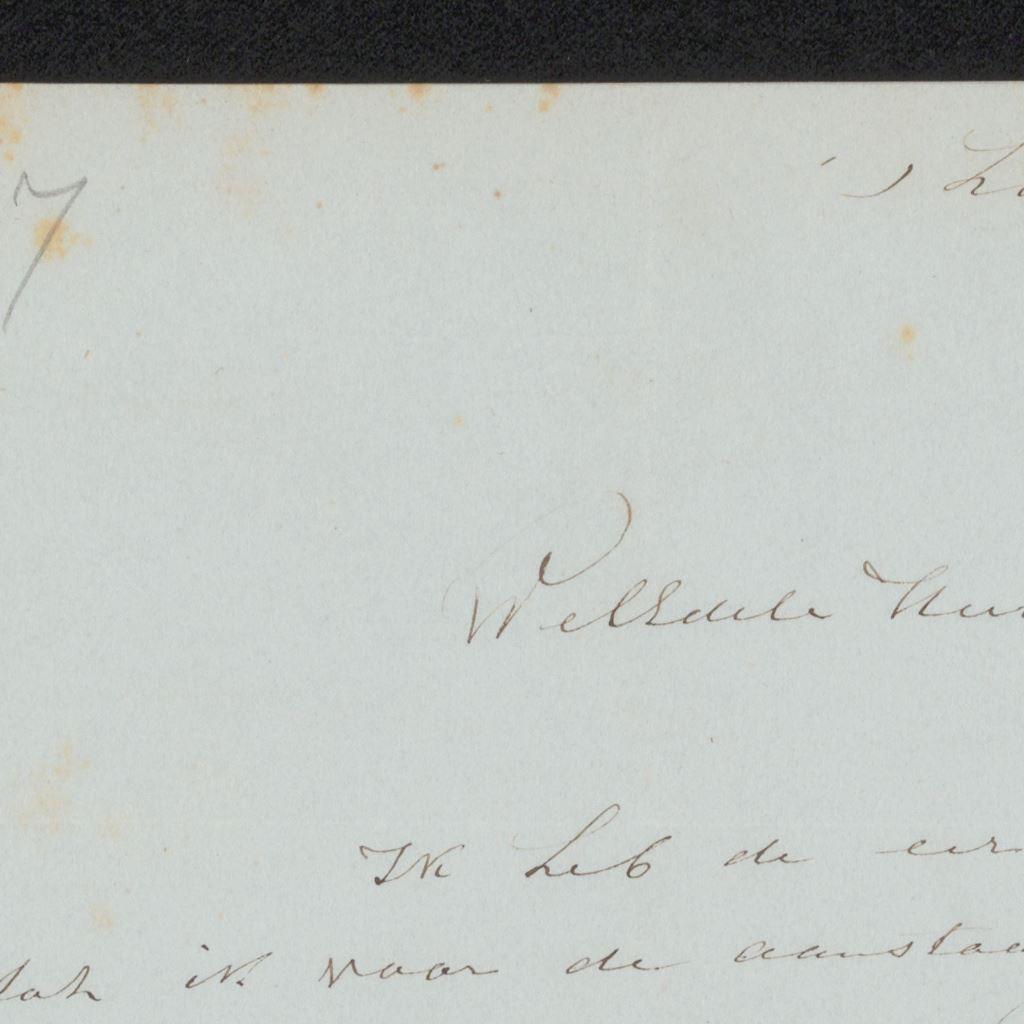 7
's
WelEdele
Ik heb de eer
dat ik voor de aanstaa